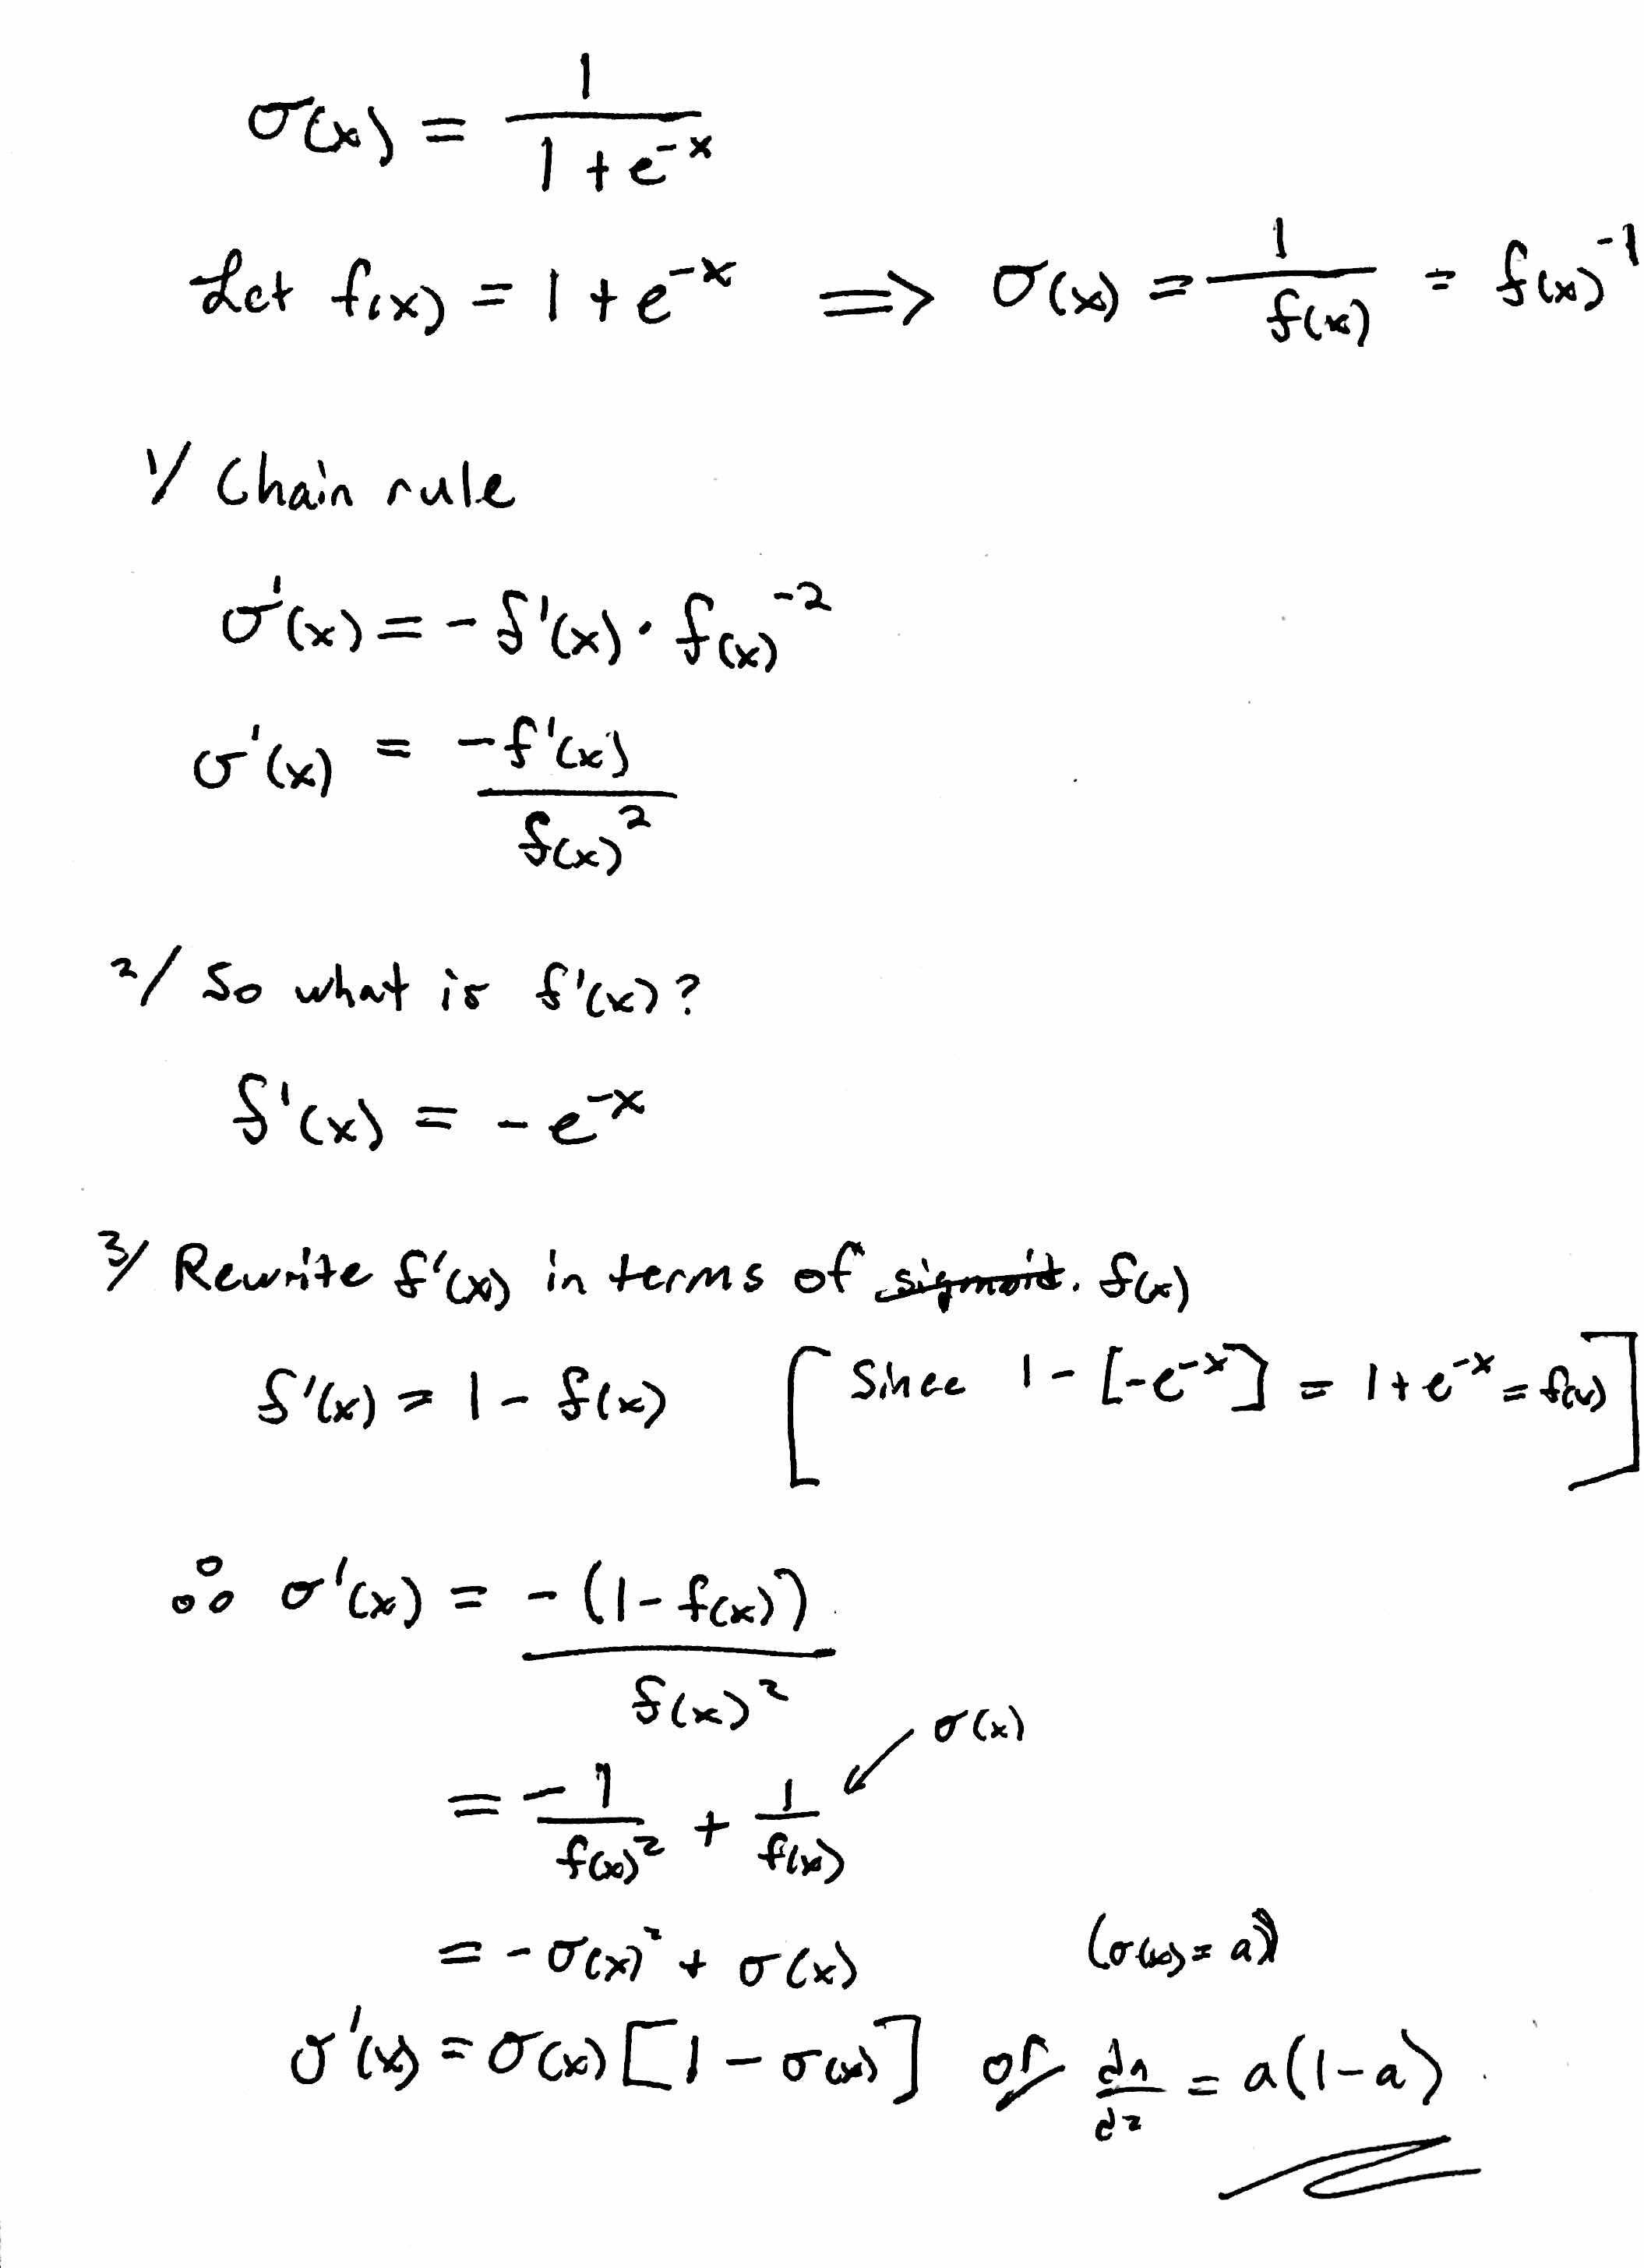 σ(x) = 1 / (1 + e^-x)
Let f(x) = 1 + e^-x ⟹ σ(x) = 1 / f(x) = f(x)^-1
1/ Chain rule
σ'(x) = - f'(x) · f(x)^-2
σ'(x) = -f'(x) / f(x)^2
2/ So what is f'(x)?
f'(x) = - e^-x
3/ Rewrite f'(x) in terms of sigmoid. f(x)
f'(x) = 1 - f(x) [Since 1 - [-e^-x] = 1 + e^-x = f(x)]
∴ σ'(x) = - (1 - f(x)) / f(x)^2
σ(x)
= -1 / f(x)^2 + 1 / f(x)
= - σ(x)^2 + σ(x) (σ(x) = a)
σ'(x) = σ(x) [1 - σ(x)] or da/dz = a(1-a)